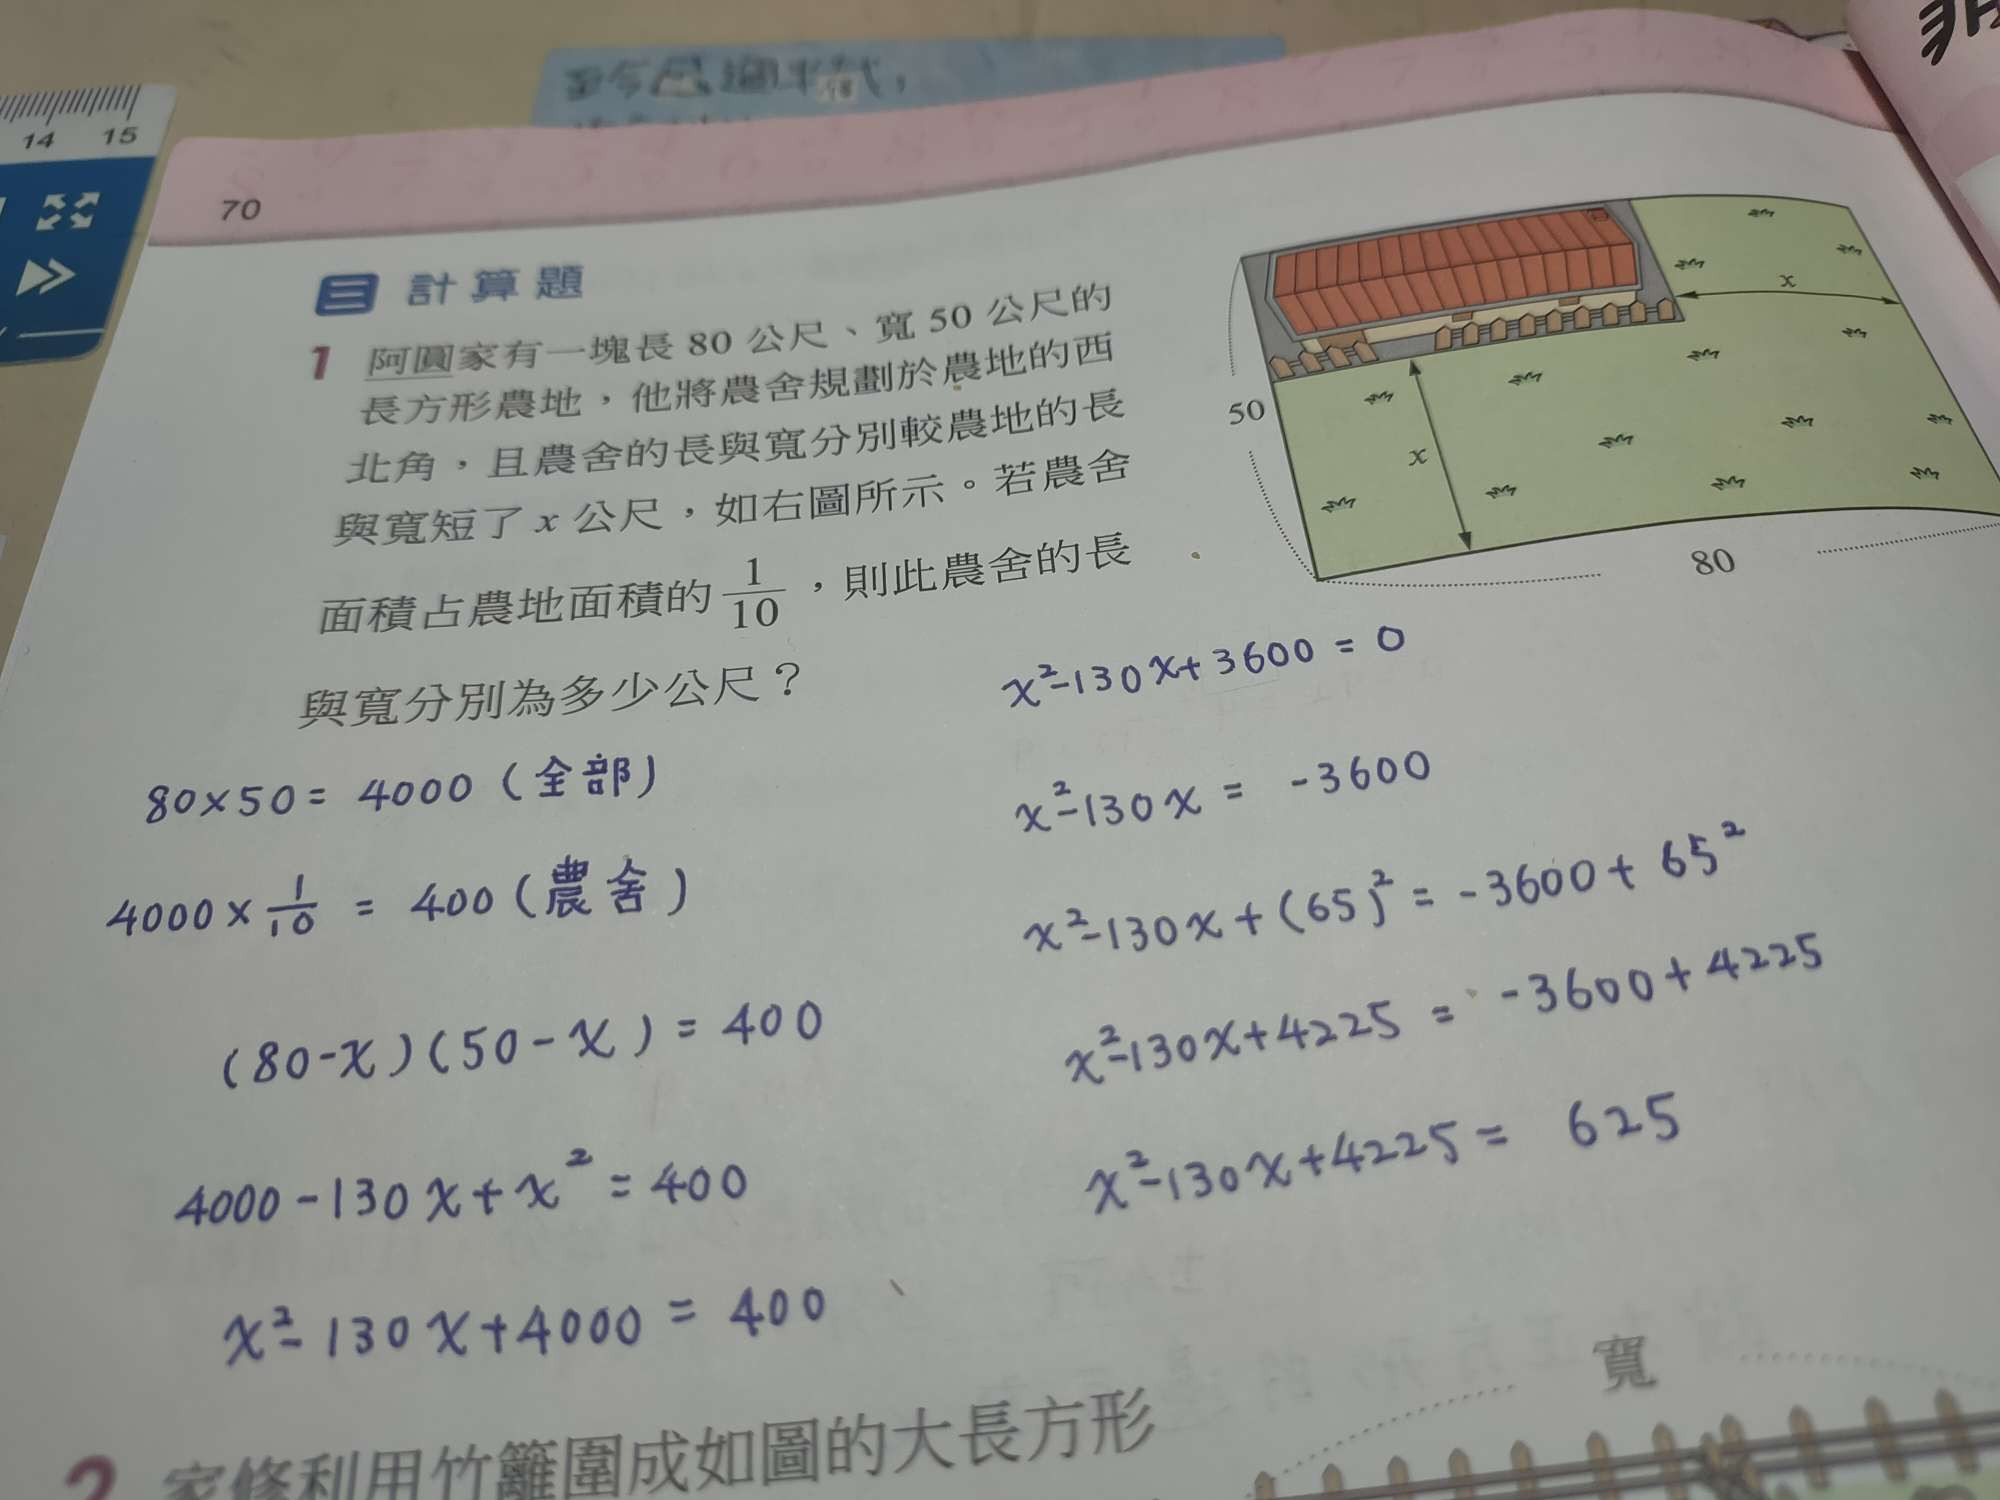 14 15
至今已過半載，
70
三 計算題
1 阿圓家有一塊長 80 公尺、寬 50 公尺的
長方形農地，他將農舍規劃於農地的西
北角，且農舍的長與寬分別較農地的長
與寬短了 x 公尺，如右圖所示。若農舍
面積占農地面積的 1/10 ，則此農舍的長
與寬分別為多少公尺？
x
50
x
80
80×50= 4000 (全部)
4000×1/10 = 400 (農舍)
(80-x)(50-x)=400
4000-130x+x²=400
x²-130x+4000=400
x²-130x+3600=0
x²-130x = -3600
x²-130x+(65)²=-3600+65²
x²-130x+4225 = -3600+4225
x²-130x+4225= 625
寬
2 家修利用竹籬圍成如圖的大長方形